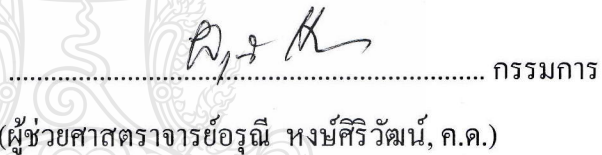 ........................................................................ กรรมการ
(ผู้ช่วยศาสตราจารย์อรุณี หงษ์ศิริวัฒน์, ค.ด.)